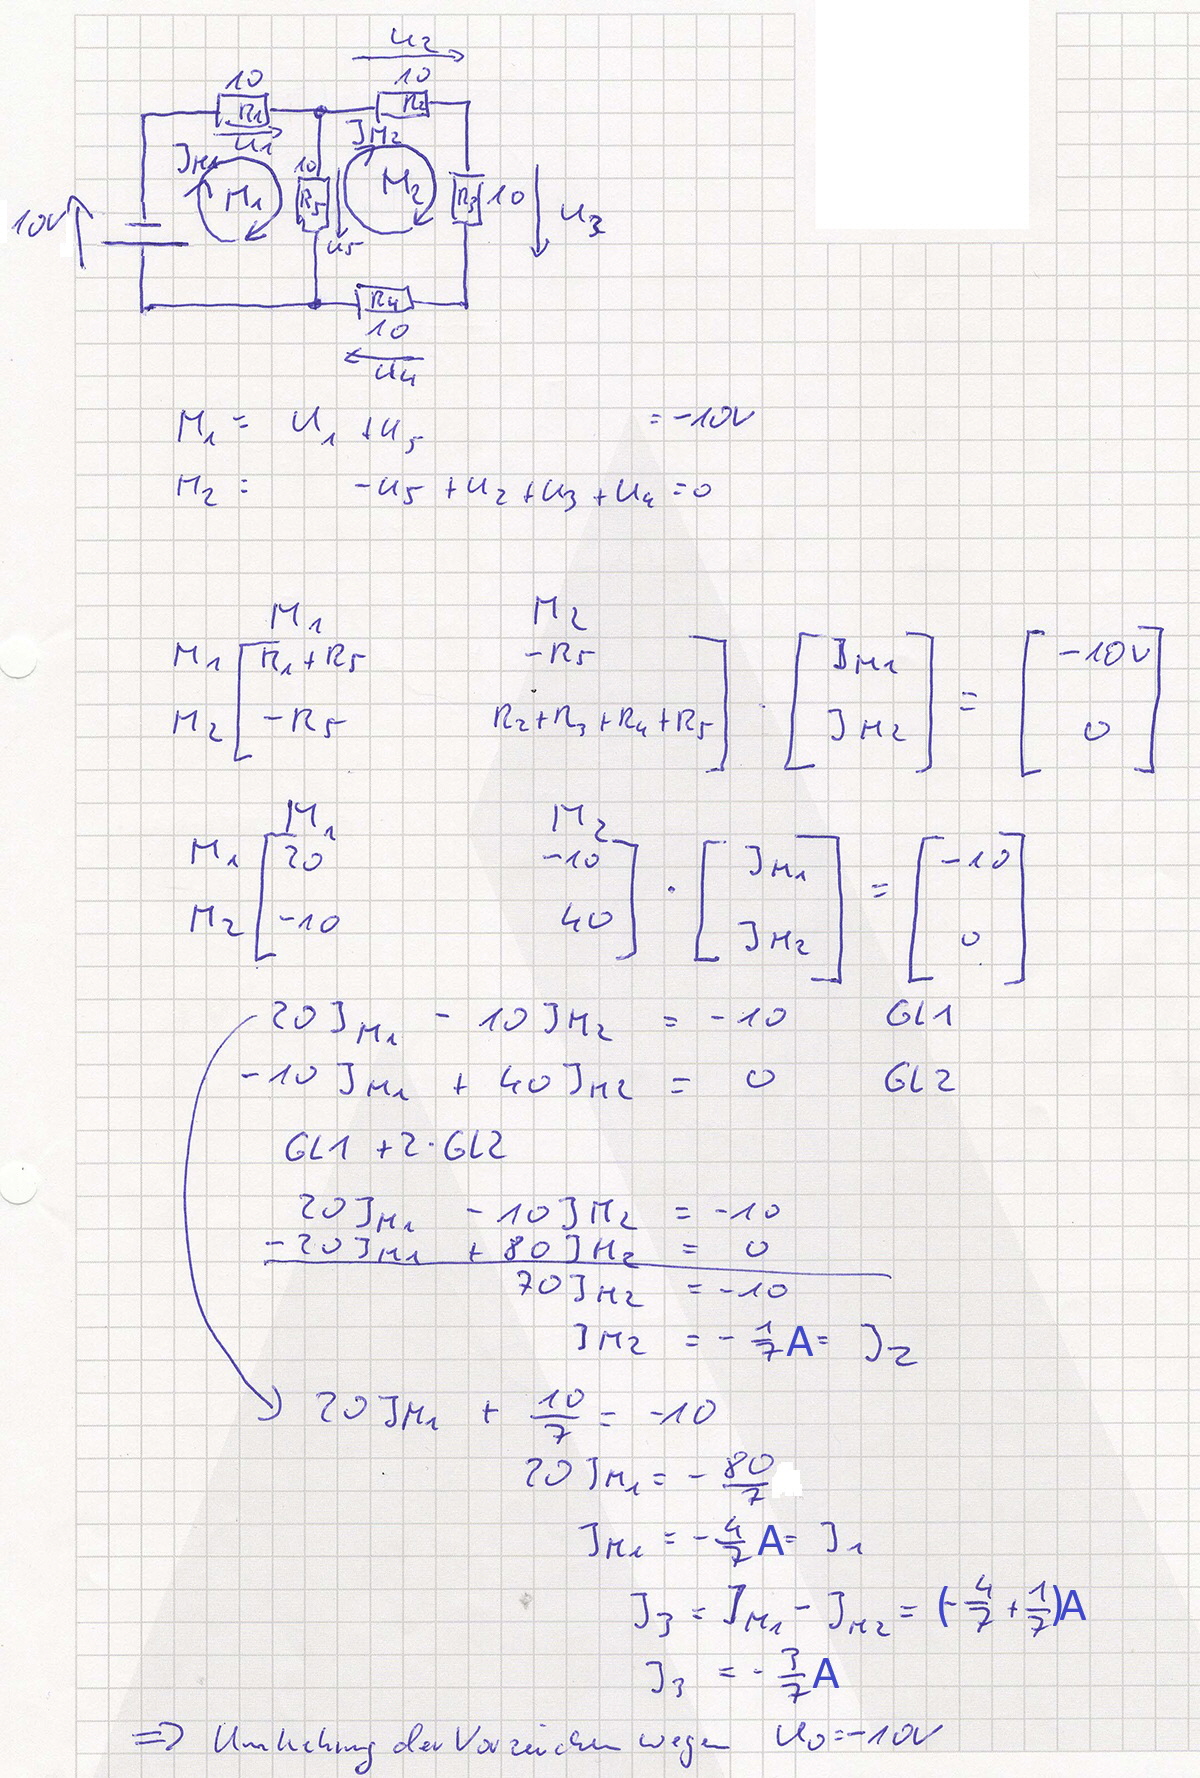 U2
10 10
R1 R2
U1
IM1 IM2
10V M1 10 R5 M2 R3 10 U3
U5
R4
10
U4
M1 = U1 + U5 = -10V
M2 = -U5 + U2 + U3 + U4 = 0
M1 M2
M1 R1+R5 -R5 IM1 -10V
M2 -R5 R2+R3+R4+R5 · IM2 = 0
M1 M2
M1 20 -10 IM1 -10
M2 -10 40 · IM2 = 0
20 IM1 - 10 IM2 = -10 GL1
-10 IM1 + 40 IM2 = 0 GL2
GL1 + 2·GL2
20 IM1 - 10 IM2 = -10
-20 IM1 + 80 IM2 = 0
70 IM2 = -10
IM2 = -1/7 A = I2
20 IM1 + 10/7 = -10
20 IM1 = -80/7
IM1 = -4/7 A = I1
I3 = IM1 - IM2 = (-4/7 + 1/7)A
I3 = -3/7 A
=> Umkehung der Vorzeichen wegen U0=-10V